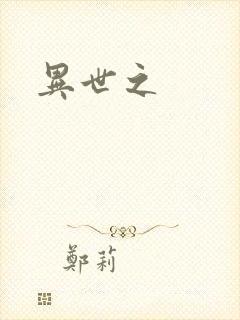 異世之
鄭莉